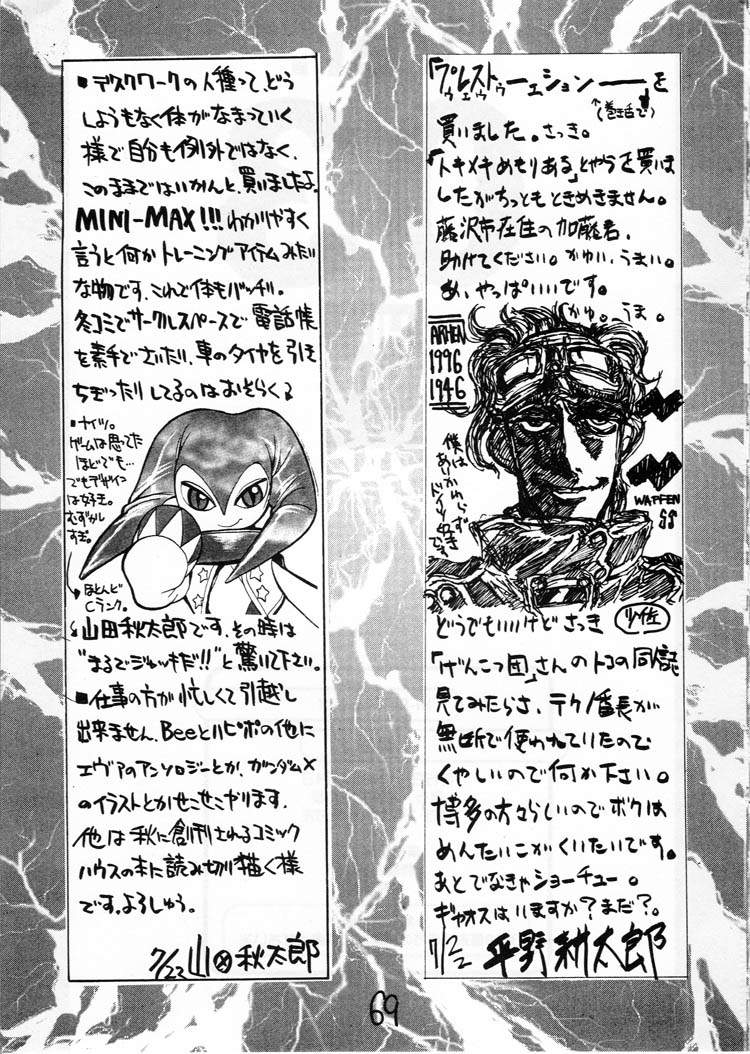 「プレストゥーエション――を
ゥェゥ
↑(巻き舌で)
買いました。さっき。
「トキメキめもりある」とやらを買いま
したがちっともときめきません。
藤沢市在住の加藤君、
助けてください。かゆい、うまい。
あ、やっぱいいです。
かゆ。うま。
ARMEN
1996
1946
僕は
あいかわらず
ドイツ好き
です。
WAFFEN
SS
どうでもいいけどさっき
少佐
「げんこつ団」さんのトコの同人誌
見てみたらさ、テクノ番長が
無断で使われていたので
くやしいので何か下さい。
博多の方々らしいのでボクは
めんたいこがくいたいです。
あとでなきゃショーチュー。
ギャオスはいますか?まだ?。
7/22 平野耕太郎
■デスクワークの人種って、どう
しようもなく体がなまっていく
様で自分も例外ではなく、
このままではいかんと、買いましたよ
MINI-MAX!!!わかりやすく
言うと何かトレーニングアイテムみたい
な物です、これで体もバッチリ。
冬コミでサークルスペースで電話帳
を素手でさいたり、車のタイヤを引き
ちぎったりしてるのはおそらく
・ナイツ。
ゲームは思ってた
ほどでも…
でもデザイン
は好き。
むずかし
すぎ。
ほとんど
Cランク。
山田秋太郎です、その時は
"まるでジャッキだ!!"と驚いて下さい。
■仕事の方が忙しくて引越し
出来ません、Beeとハピポの他に
エヴァのアンソロジーとか、ガンダムX
のイラストとかせこせこやります、
他は秋に創刊されるコミック
ハウスの本に読み切り描く様
です。よろしゅう。
7/22 山⊗秋太郎
69